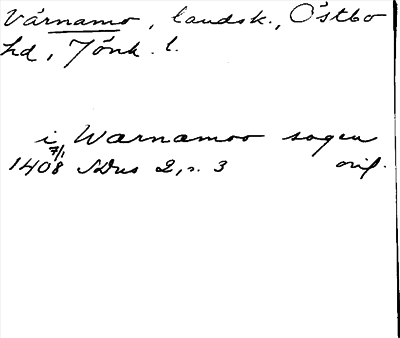 Värnamo, landsk., Östbo
hd, Jönk. l.
i Warnamoo sogen
7/1
1408 SDns 2, s. 3 orig.